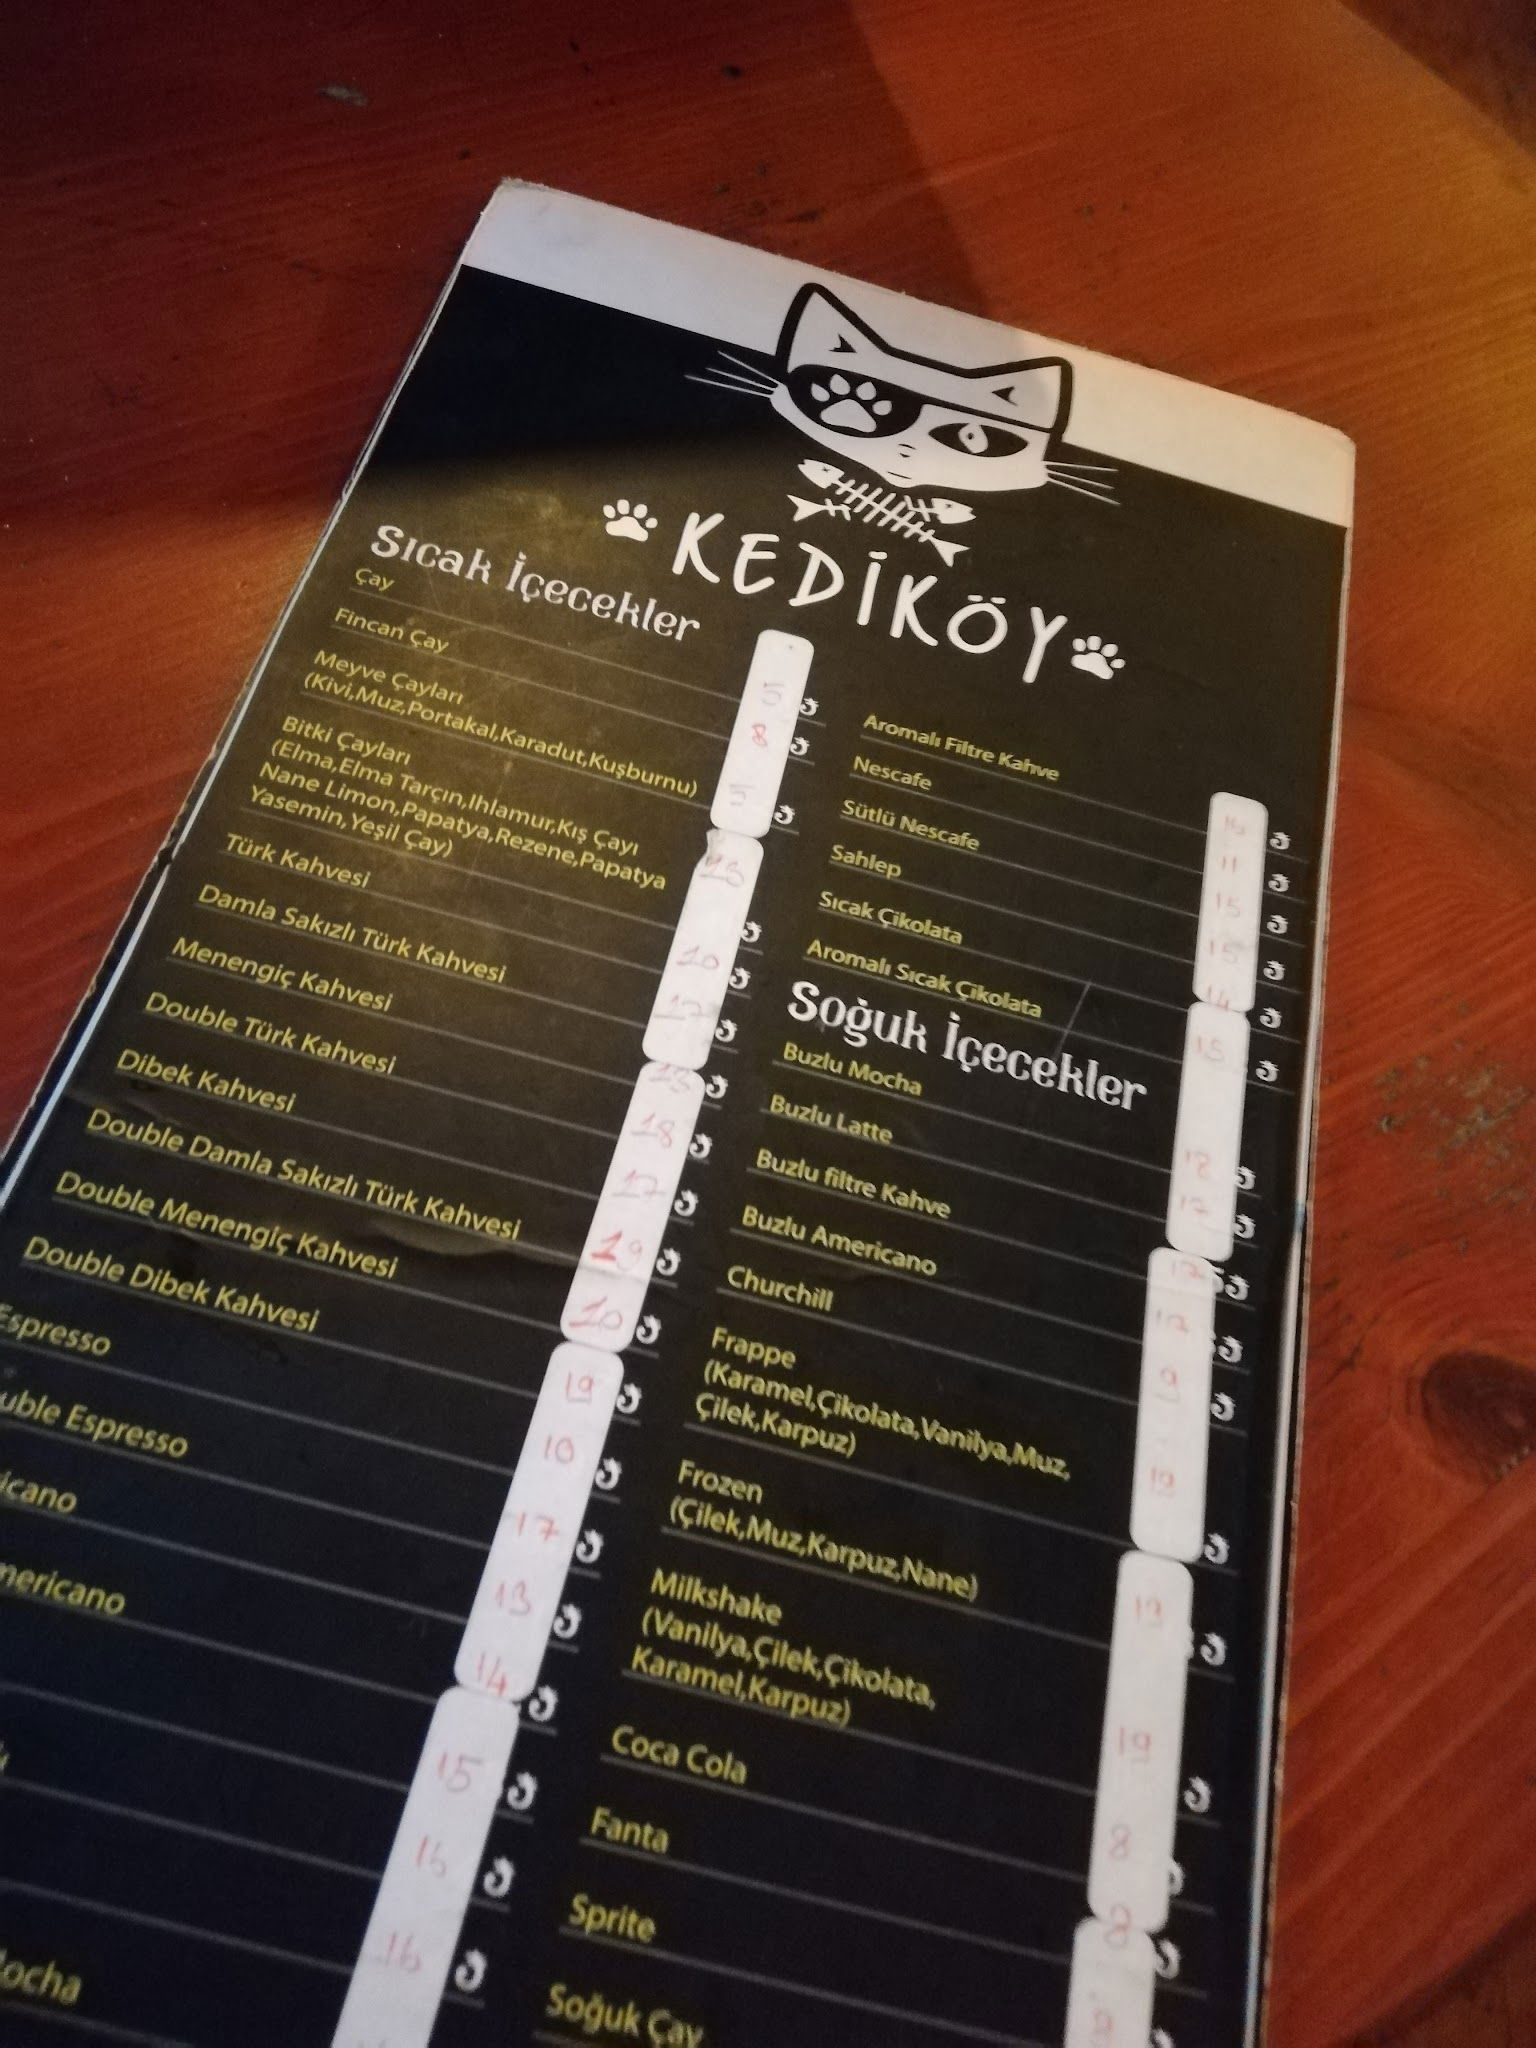 KEDİKÖY
Sıcak İçecekler
Çay
Fincan Çay
Meyve Çayları
(Kivi,Muz,Portakal,Karadut,Kuşburnu)
Bitki Çayları
(Elma,Elma Tarçın,Ihlamur,Kış Çayı
Nane Limon,Papatya,Rezene,Papatya
Yasemin,Yeşil Çay)
Türk Kahvesi
Damla Sakızlı Türk Kahvesi
Menengiç Kahvesi
Double Türk Kahvesi
Dibek Kahvesi
Double Damla Sakızlı Türk Kahvesi
Double Menengiç Kahvesi
Double Dibek Kahvesi
Espresso
Espresso
5
8
5
13
10
18
17
19
10
19
10
17
13
14
15
16
Aromalı Filtre Kahve
Nescafe
11
Sütlü Nescafe
15
Sahlep
15
Sıcak Çikolata
14
Aromalı Sıcak Çikolata
15
Soğuk İçecekler
Buzlu Mocha
Buzlu Latte
17
Buzlu filtre Kahve
17
Buzlu Americano
17
Churchill
9
Frappe
(Karamel,Çikolata,Vanilya,Muz,
Çilek,Karpuz)
19
Frozen
(Çilek,Muz,Karpuz,Nane)
Milkshake
(Vanilya,Çilek,Çikolata,
Karamel,Karpuz)
19
Coca Cola
8
Fanta
8
Sprite
Soğuk Çay